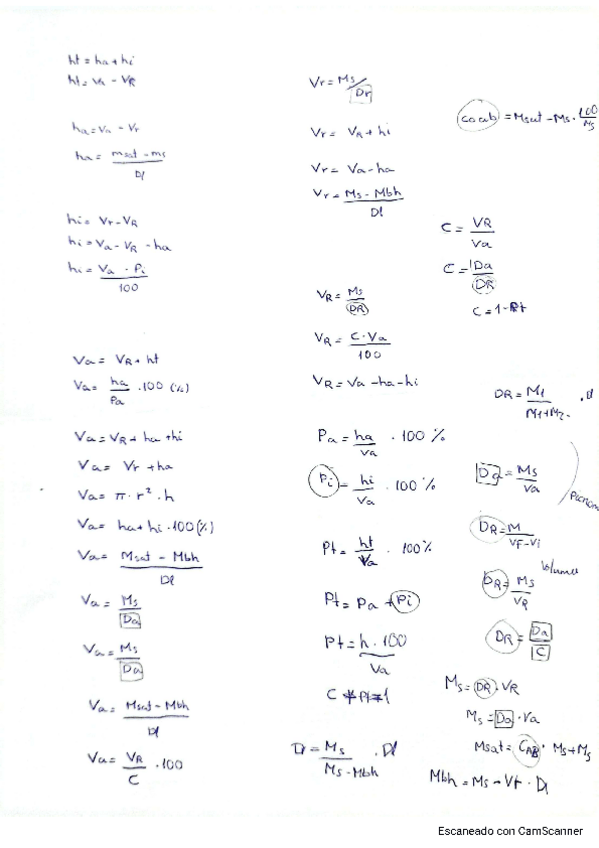 ht = ha + hi
ht = Va - VR
ha = Va - Vr
ha = msat - ms / Dl
hi = Vr - VR
hi = Va - VR - ha
hi = Va · Pi / 100
Va = VR + ht
Va = ha / Pa · 100 (%)
Va = VR + ha + hi
Va = Vr + ha
Va = π · r² · h
Va = ha + hi · 100 (%)
Va = Msat - Mbh / Dl
Va = Ms / Da
Va = Ms / Da
Va = Msat - Mbh / Dl
Va = VR / C · 100
Vr = Ms / Dr
Vr = VR + hi
Vr = Va - ha
Vr = Ms - Mbh / Dl
VR = Ms / DR
VR = C · Va / 100
VR = Va - ha - hi
Pa = ha / Va · 100 %
Pi = hi / Va · 100 %
Pt = ht / Va · 100 %
Pt = Pa + Pi
Pt = h · 100 / Va
C + Pt = 1
Dr = Ms / Ms - Mbh · Dl
Coab = Msat - Ms · 100 / Ms
C = VR / Va
C = Da / DR
C = 1 - Pt
DR = M1 / M1 + M2 · Dl
Da = Ms / Va
DR = M / VF - Vi
DR = Ms / VR
DR = Da / C
Ms = DR · VR
Ms = Da · Va
Msat = CAB · Ms + Ms
Mbh = Ms - Vr · Dl
Escaneado con CamScanner